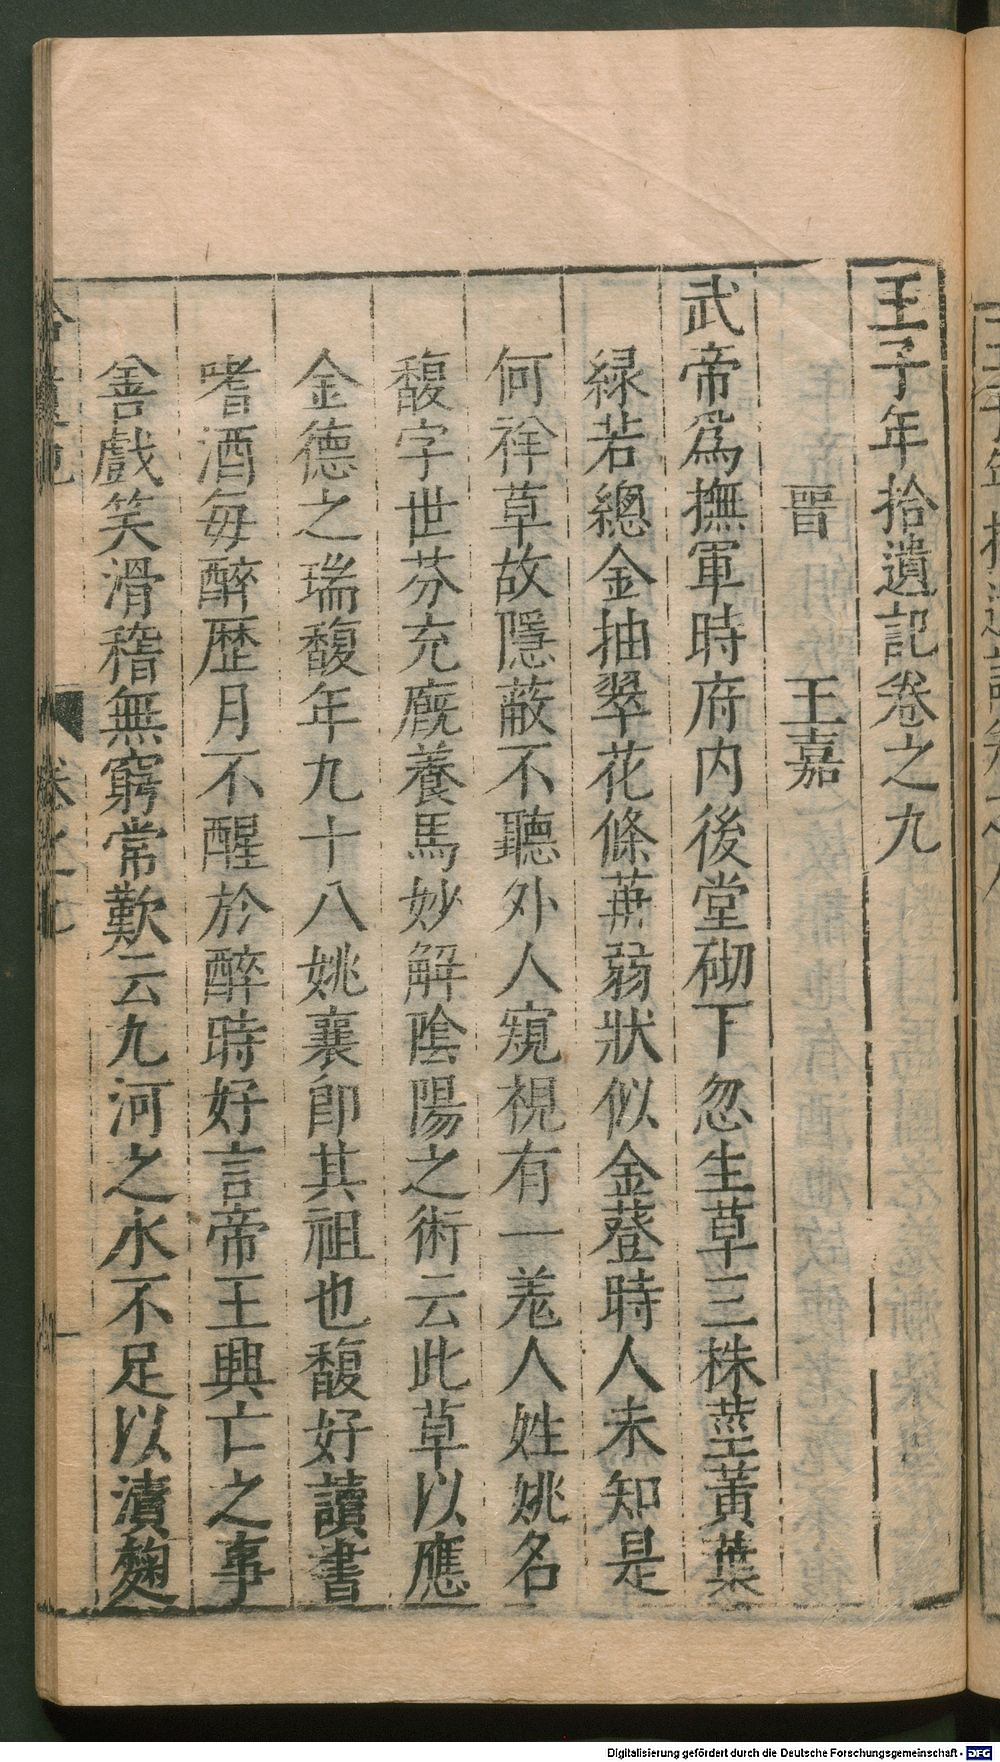 王子年拾遺記卷之九
晉　王嘉
武帝爲撫軍時府内後堂砌下忽生草三株莖黃葉
緑若總金抽翠花條苒弱狀似金䔲時人未知是
何祥草故隱蔽不聽外人窺視有一羌人姓姚名
馥字世芬充厩養馬妙解陰陽之術云此草以應
金德之瑞馥年九十八姚襄卽其祖也馥好讀書
嗜酒每醉歷月不醒於醉時好言帝王興亡之事
善戲笑滑稽無窮常歎云九河之水不足以漬麴
卷之九
一
Digitalisierung gefördert durch die Deutsche Forschungsgemeinschaft - DFG